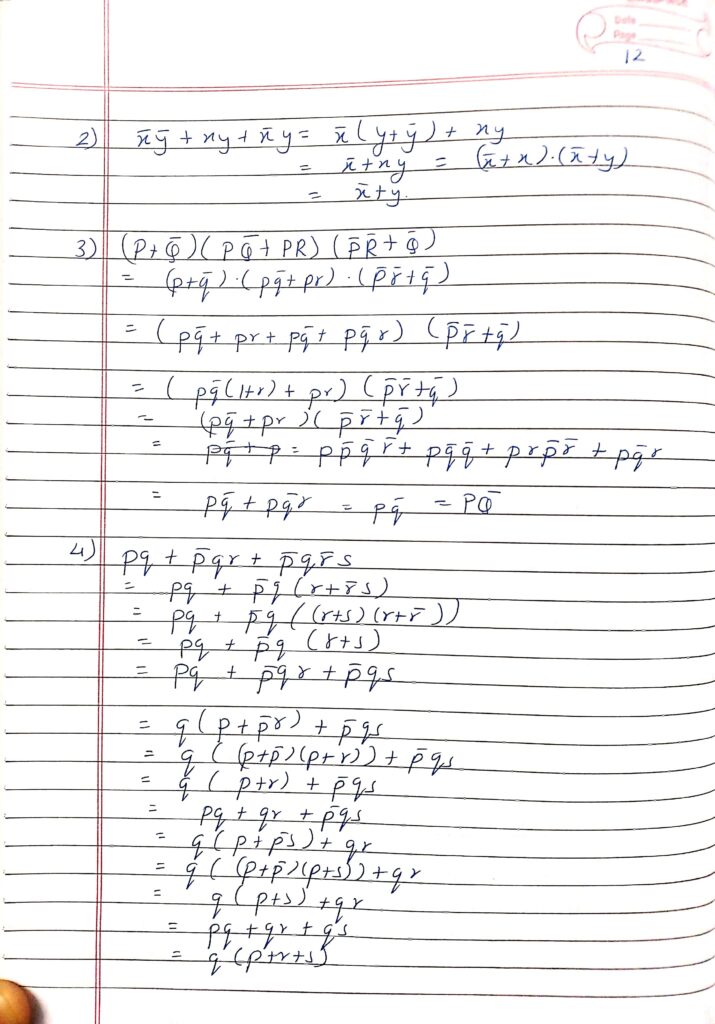 Date
Page
12
2) x̄ȳ + xy + x̄y = x̄(y+ȳ) + xy
= x̄+xy = (x̄+x).(x̄+y)
= x̄+y.
3) (P+Q̄)(PQ̄+PR)(P̄R̄+Q̄)
= (p+q̄).(pq̄+pr).(p̄r̄+q̄)
= (pq̄+pr+pq̄+pq̄r) (p̄r̄+q̄)
= (pq̄(1+r)+pr) (p̄r̄+q̄)
= (pq̄+pr)(p̄r̄+q̄)
= pq̄+p = pp̄q̄r̄ + pq̄q̄ + prp̄r̄ + pq̄r
= pq̄ + pq̄r = pq̄ = PQ̄
4) pq + p̄qr + p̄qr̄s
= pq + p̄q (r+r̄s)
= pq + p̄q ((r+s)(r+r̄))
= pq + p̄q (r+s)
= pq + p̄qr + p̄qs
= q(p+p̄r) + p̄qs
= q ((p+p̄)(p+r)) + p̄qs
= q (p+r) + p̄qs
= pq + qr + p̄qs
= q(p+p̄s) + qr
= q ((p+p̄)(p+s)) + qr
= q (p+s) + qr
= pq + qr + qs
= q (p+r+s)